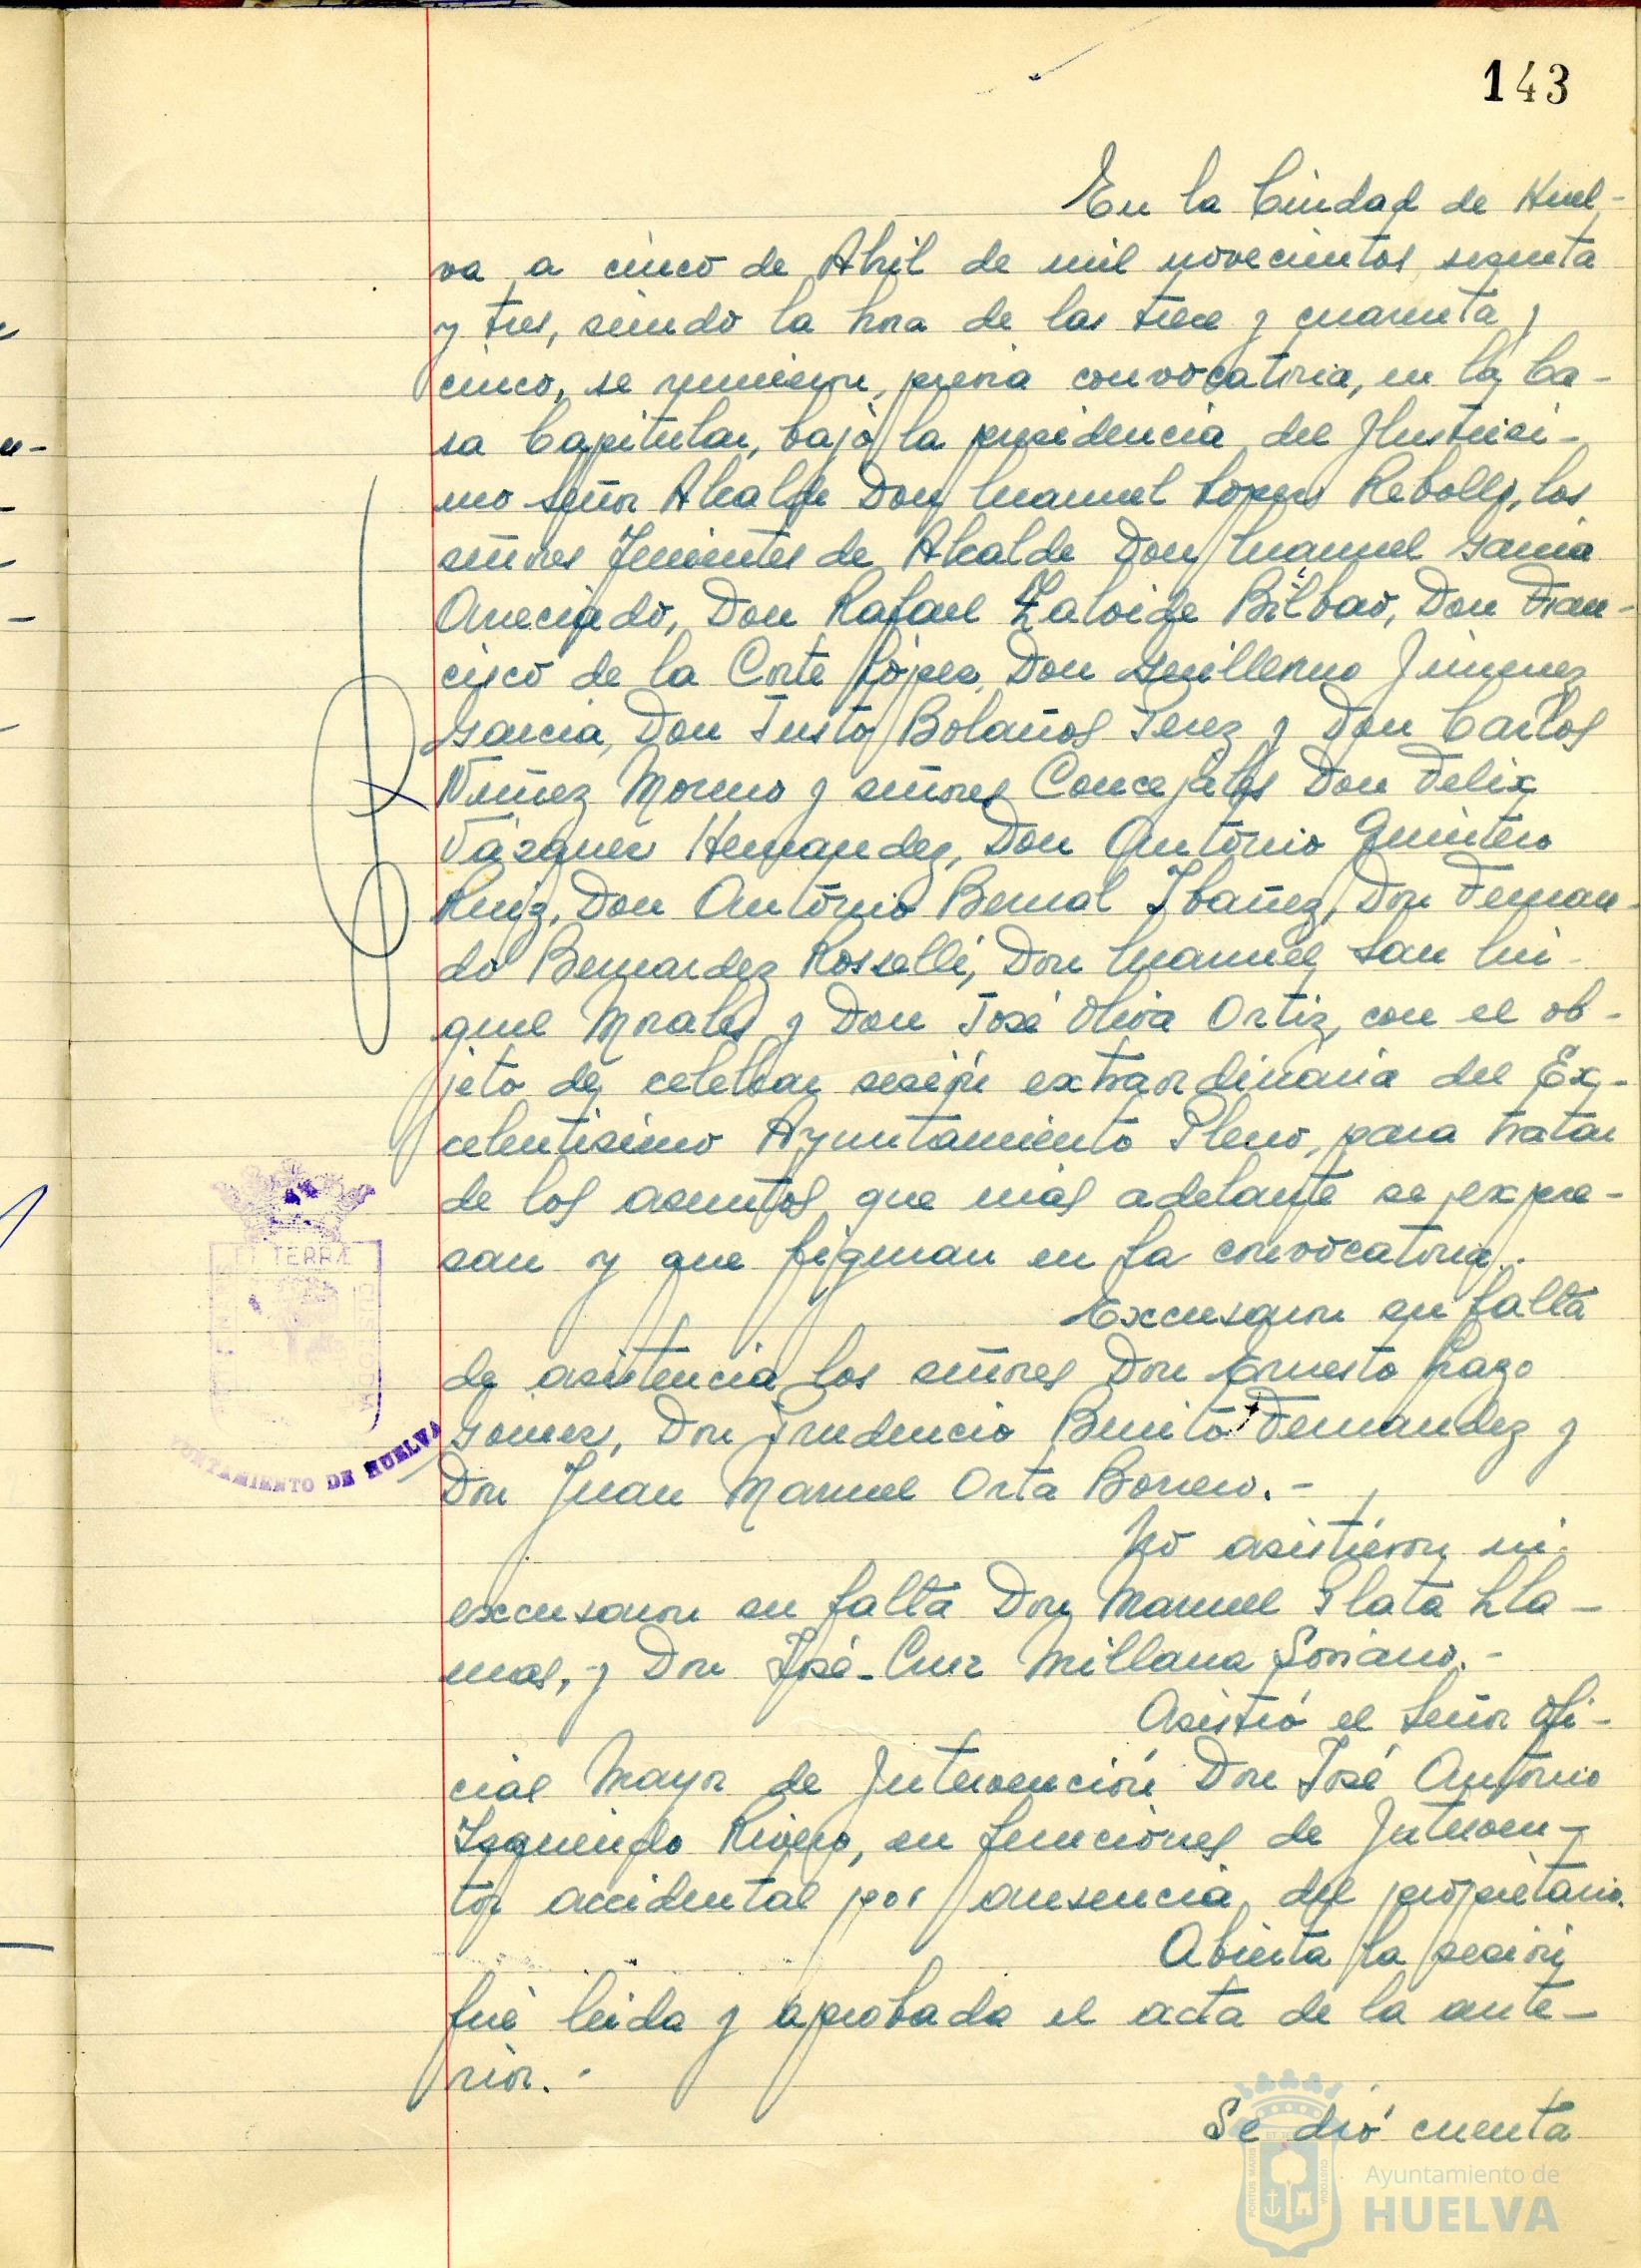 143
En la Ciudad de Huel-
va a cinco de Abril de mil novecientos sesenta
y tres, siendo la hora de las trece y cuarenta y
cinco, se reunieron, previa convocatoria, en la Ca-
sa Capitular, bajo la presidencia del Ilustrisi-
mo señor Alcalde Don Manuel López Rebollo, los
señores Tenientes de Alcalde Don Manuel Garcia
Arreciado, Don Rafael Zalvide Bilbao, Don Fran-
cisco de la Corte López, Don Guillermo Jimenez
Garcia, Don Justo Bolaños Perez y Don Carlos
Nuñez Moreno y señores Concejales Don Felix
Vázquez Hernandez, Don Antonio Quintero
Ruiz, Don Antonio Bernal Ibañez, Don Fernan-
do Bernardez Rosselli, Don Manuel San Mi-
guel Morales y Don José Oliva Ortiz, con el ob-
jeto de celebrar sesión extraordinaria del Ex-
celentisimo Ayuntamiento Pleno, para tratar
de los asuntos que mas adelante se expre-
san y que figuran en la convocatoria.
Excusaron su falta
de asistencia los señores Don Ernesto Lazo
Gomez, Don Prudencio Benito Fernandez y
Don Juan Manuel Orta Borrero.-
No asistieron ni
excusaron su falta Don Manuel Plata Lla-
mas, y Don José-Cruz Millana Soriano.-
Asistió el Señor Ofi-
cial Mayor de Intervención Don José Antonio
Izquierdo Rivero, en funciones de Interven-
tor accidental por ausencia del propietario.
Abierta la sesión
fué leida y aprobada el acta de la ante-
rior.-
Se dió cuenta
ET TERRÆ
CUSTODIA
AYUNTAMIENTO DE HUELVA
Ayuntamiento de
HUELVA